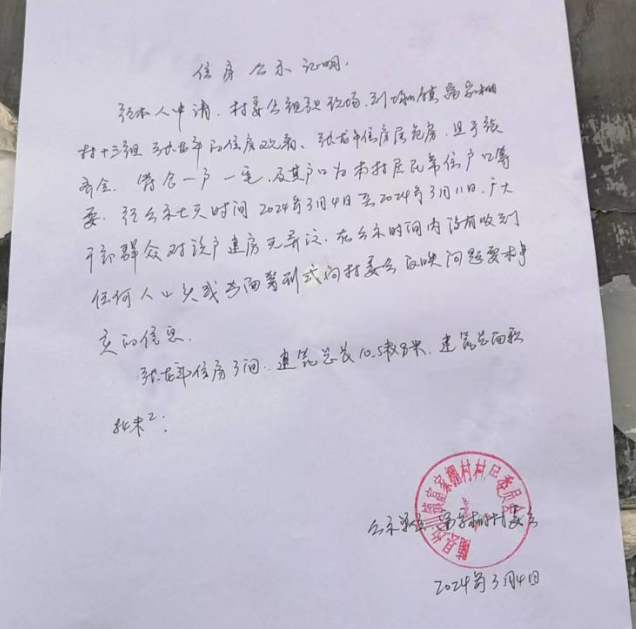 住房公示证明
经本人申请,村委会组织现场,到 镇富家棚
村十三组 张 年的住房 ,张 年住房属危房,且
符合一户一宅,及其户口为本村居民常住户口等
要 经公示七天时间2024年3月4日至2024年3月11日,广大
干部群众对该户建房无异议,在公示时间内没有收到
任何人口头或书面等形式向村委会反映问题要求
的信息.
张 年住房3间,建筑总长10.5 8米,建筑总面积
米²;
镇富家棚村村民委员会
公示单位:富家棚村委会
2024年3月4日